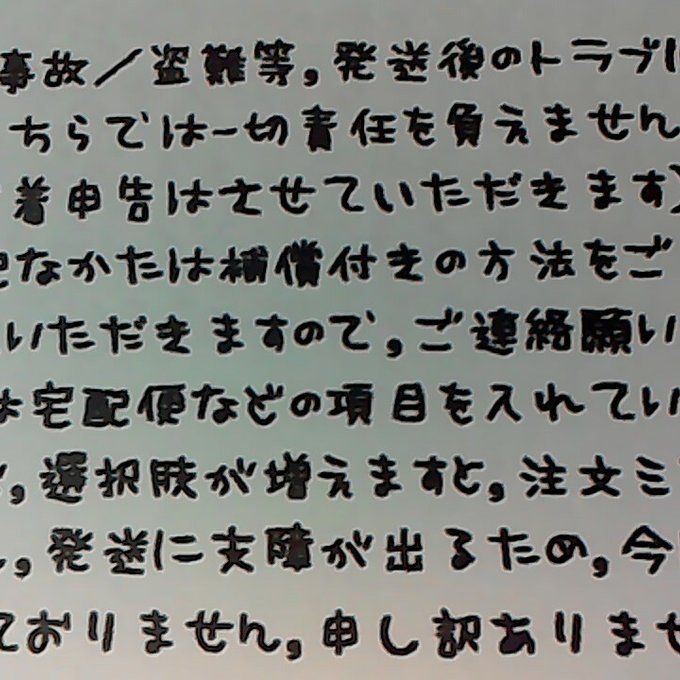 事故／盗難等,発送後のトラブ
ちらでは一切責任を負えません
着申告はさせていただきます
なかたは補償付きの方法をご
いただきますので,ご連絡願い
宅配便などの項目を入れてい
,選択肢が増えますと,注文ミ
,発送に支障が出るため,今
ておりません,申し訳ありませ